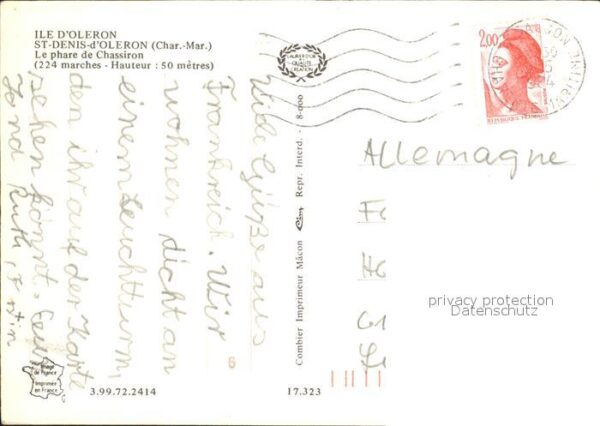 ILE D'OLERON
ST-DENIS-d'OLERON (Char.-Mar.)
Le phare de Chassiron
(224 marches - Hauteur : 50 mètres)
Viele Grüße aus
Frankreich. Wir
wohnen dicht an
einem Leuchtturm,
den ihr auf der Karte
sehen könnt.
Ruth,
QUALITÉ
CREATION
Combier Imprimeur Mâcon
Repr. Interd. - 8-000
2,00
REPUBLIQUE FRANÇAISE
Allemagne
privacy protection
Datenschutz
6
Image
de France
Imprimée
en France
3.99.72.2414
17.323